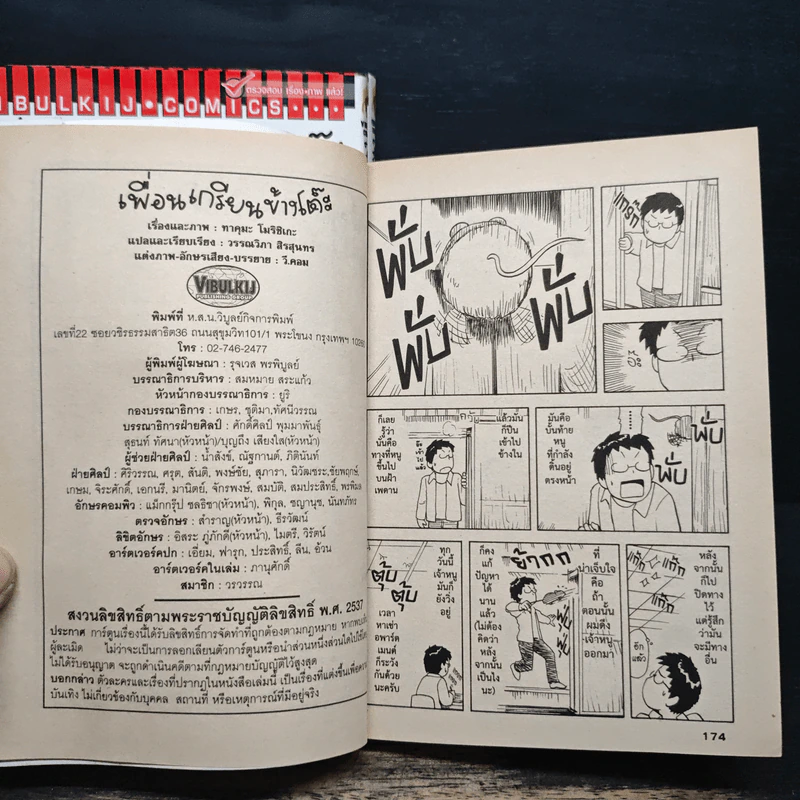 IBULKIJ•COMICS•••
ตรวจสอบ เรื่อง•ภาพ แล้ว!
เพื่อนเกรียนข้างโต๊ะ
เรื่องและภาพ : ทาคุมะ โมริชิเกะ
แปลและเรียบเรียง : วรรณวิภา สิรสุนทร
แต่งภาพ-อักษรเสียง-บรรยาย : วี.คอม
VIBULKIJ
PUBLISHING GROUP
พิมพ์ที่ ห.ส.น.วิบูลย์กิจการพิมพ์
เลขที่22 ซอยวชิรธรรมสาธิต36 ถนนสุขุมวิท101/1 พระโขนง กรุงเทพฯ 10260
โทร : 02-746-2477
ผู้พิมพ์ผู้โฆษณา : รุจเวส พรพิบูลย์
บรรณาธิการบริหาร : สมหมาย สระแก้ว
หัวหน้ากองบรรณาธิการ : ยูริ
กองบรรณาธิการ : เกษร, ชุติมา,ทัศนีวรรณ
บรรณาธิการฝ่ายศิลป์ : ศักดิ์ศิลป์ พุมมาพันธุ์
สุธนท์ ทัศนา(หัวหน้า)/บุญถึง เสียงใส(หัวหน้า)
ผู้ช่วยฝ่ายศิลป์ : น้ำสังข์, ณัฐกานต์, ภิตินันท์
ฝ่ายศิลป์ : ศิริวรรณ, ศรุต, สันติ, พงษ์ชัย, สุภารา, นิวัฒชระ,ชัยพฤกษ์,
เกษม, จิระศักดิ์, เอกนรี, มานิตย์, จักรพงษ์, สมบัติ, สมประสิทธิ์,
อักษรคอมพิว : แม็กกรุ๊ป ชลธิชา(หัวหน้า), พิกุล, ชญานุช, นันทภัทร
ตรวจอักษร : สำราญ(หัวหน้า), ธีรวัฒน์
ลิขิตอักษร : อิสระ ภู่ภักดี(หัวหน้า), ไมตรี, วิรัตน์
อาร์ตเวอร์คปก : เอี่ยม, ฟารุก, ประสิทธิ์, สืน, อ้วน
อาร์ตเวอร์คในเล่ม : ภานุศักดิ์
สมาชิก : วรวรรณ
สงวนลิขสิทธิ์ตามพระราชบัญญัติลิขสิทธิ์ พ.ศ. 2537
ประกาศ การ์ตูนเรื่องนี้ได้รับลิขสิทธิ์การจัดทำที่ถูกต้องตามกฎหมาย หากพบเห็น
ผู้ละเมิด ไม่ว่าจะเป็นการลอกเลียนตัวการ์ตูนหรือนำส่วนหนึ่งส่วนใดไปใช้โดย
ไม่ได้รับอนุญาต จะถูกดำเนินคดีตามที่กฎหมายบัญญัติไว้สูงสุด
บอกกล่าว ตัวละครและเรื่องที่ปรากฏในหนังสือเล่มนี้ เป็นเรื่องที่แต่งขึ้นเพื่อความ
บันเทิง ไม่เกี่ยวข้องกับบุคคล สถานที่ หรือเหตุการณ์ที่มีอยู่จริง
พั่บ
พั่บ
พั่บ
แกร๊ก
ก็เลย
รู้ว่า
นั่นคือ
ทางที่หนู
ขึ้นไป
บนฝ้า
เพดาน
แล้วมัน
ก็ปืน
เข้าไป
ข้างใน
มันคือ
บั้นท้าย
หนู
ที่กำลัง
ดิ้นอยู่
ตรงหน้า
พั่บ
พั่บ
พั่บ
ทุก
วันนี้
เจ้าหนู
มันก็
ยังวิ่ง
อยู่
ตุ้บ
ตุ้บ
เวลา
หาเช่า
อพาร์ต
เมนต์
ก็ระวัง
กันด้วย
นะครับ
ก็คง
แก้
ปัญหา
ได้
นาน
แล้ว
(ไม่ต้อง
คิดว่า
หลัง
จากนั้น
เป็นไง
นะ)
ย้ากกก
ที่
น่าเจ็บใจ
คือ
ถ้า
ตอนนั้น
ผมดึง
เจ้าหนู
ออกมา
หลัง
จากนั้น
ก็ไป
ปิดทาง
ไว้
แต่รู้สึก
ว่ามัน
จะมีทาง
อื่น
แก๊ก
แก๊ก
แก๊ก
อีก
แล้ว
174